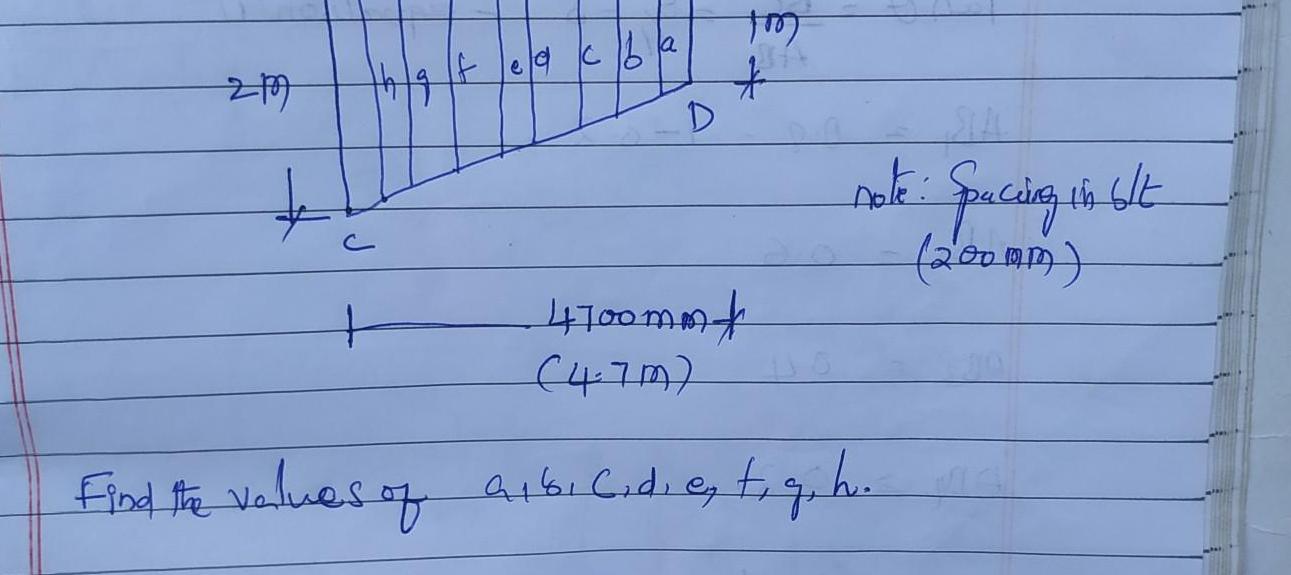 1m
2m
h g f e d c b a
D
C
note: Spacing in b/t
(200mm)
4700mm
(4.7m)
Find the values of a, b, c, d, e, f, g, h.